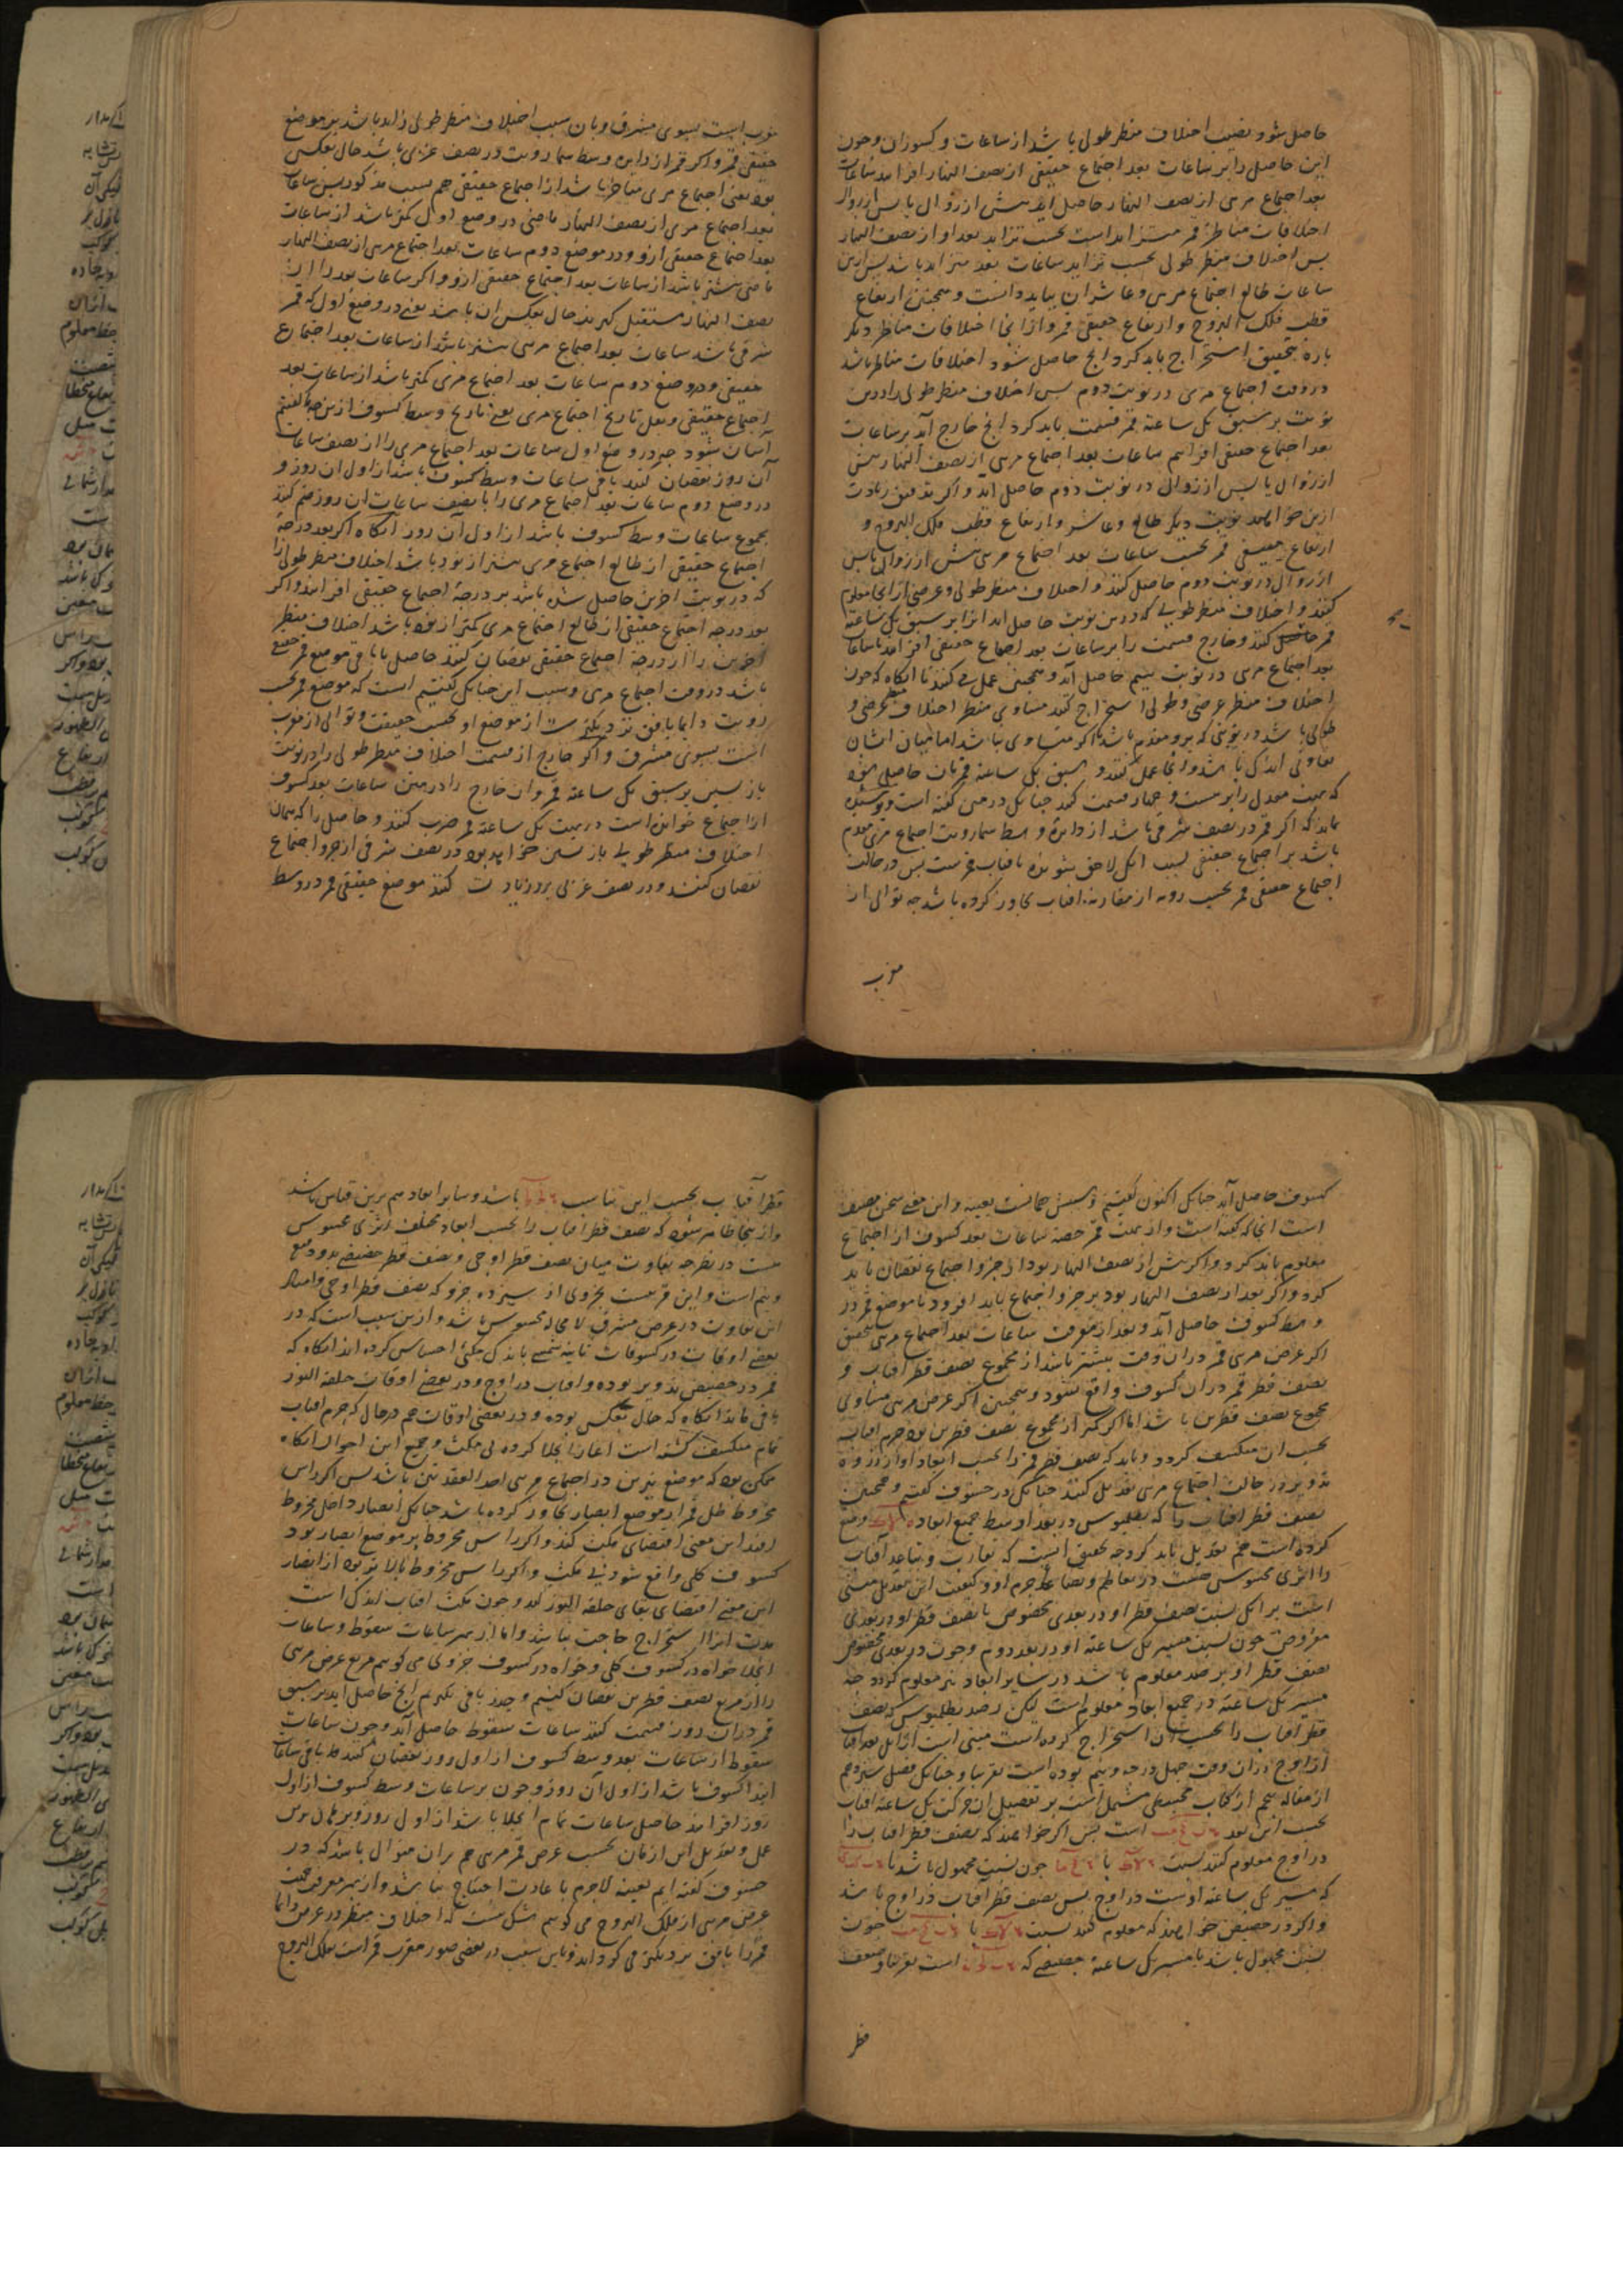 حاصل شود نصیف اختلاف منظر طولی باشد از ساعات و کسور آن و چون
این حاصل را بر ساعات بعد اجتماع حقیقی از نصف النهار افزایند ساعات
بعد اجتماع مرئی از نصف النهار حاصل آید پیش از زوال یا پس از زوال
اختلافات مناظر قمر متزاید است بحسب تزاید بعد او از نصف النهار
پس اختلاف منظر طولی بحسب تزاید ساعات بعد متزاید باشد پس ازین
ساعات طالع اجتماع مرئی و عاشر آن بباید دانست و همچنین ارتفاع
قطب فلک البروج و ارتفاع حقیقی قمر و از آنجا اختلافات مناظر دیگر
باره بتحقیق استخراج باید کرد آنچ حاصل شود اختلافات مناظر باشد
در وقت اجتماع مرئی در نوبت دوم پس اختلاف منظر طولی را درین
نوبت بر سبق یک ساعته قمر قسمت باید کرد آنچ خارج آید بر ساعات
بعد اجتماع حقیقی افزایم ساعات بعد اجتماع مرئی از نصف النهار پیش
از زوال یا پس از زوال در نوبت دوم حاصل آید و اگر تدقیق زیادت
ازین خواهند نوبت دیگر طالع و عاشر و ارتفاع قطب فلک البروج و
ارتفاع حقیقی قمر بحسب ساعات بعد اجتماع مرئی پیش از زوال یا پس
از زوال در نوبت دوم حاصل کنند و اختلاف منظر طولی و عرضی از آنجا معلوم
کنند و اختلاف منظر طولی که درین نوبت حاصل آید آنرا بر سبق یک ساعته
قمر حاصل کنند و خارج قسمت را بر ساعات بعد اجتماع حقیقی افزایند تا ساعات
بعد اجتماع مرئی در نوبت سیم حاصل آید و همچنین عمل می کنند تا آنگاه که چون
اختلاف منظر عرضی و طولی استخراج کنند مساوی منظر اختلاف عرضی و
طولی باشد در نوبتی که برو مقدم باشد یا اگر متساوی نباشد اما میان ایشان
تفاوتی اندک باشد و آنجا عمل کنند و سبق یک ساعته قمر بآن حاصل شود
که بهت معدل را بر بیست و چهار قسمت کند چنانک در متن گفته است و پوشیده
نماند که اگر قمر در نصف شرقی باشد از دایره وسط سما رویت اجتماع مرئی مقدم
باشد بر اجتماع حقیقی بسبب آنک لاحق بشونده بآفتاب قمرست پس در حالت
اجتماع حقیقی قمر بحسب رویه از مقارنه آفتاب تجاوز کرده باشد چه توالی از
مغرب
مغرب است بسوی مشرق و بآن سبب اختلاف منظر طولی زاید باشد بر موضع
حقیقی قمر و اگر قمر از دایره وسط سما رویت در نصف غربی باشد حال بعکس
بود یعنی اجتماع مرئی متأخر باشد از اجتماع حقیقی هم بسبب مذکور پس ساعات
بعد اجتماع مرئی از نصف النهار ماضی در وضع اول کمتر باشد از ساعات
بعد اجتماع حقیقی ازو و در موضع دوم ساعات بعد اجتماع مرئی از نصف النهار
ماضی بیشتر باشد از ساعات بعد اجتماع حقیقی ازو و اگر ساعات بعد را از
نصف النهار مستقبل گیرند حال بعکس آن باشد یعنی در وضع اول که قمر
شرقی باشد ساعات بعد اجتماع مرئی بیشتر باشد از ساعات بعد اجتماع
حقیقی و در وضع دوم ساعات بعد اجتماع مرئی کمتر باشد از ساعات بعد
اجتماع حقیقی و نقل تاریخ اجتماع مرئی یعنی تاریخ وسط کسوف ازین جا که گفتیم
آسان شود چه در وضع اول ساعات بعد اجتماع مرئی را از نصف ساعات
آن روز نقصان کنند باقی ساعات وسط کسوف باشد از اول آن روز و
در وضع دوم ساعات بعد اجتماع مرئی را با نصف ساعات آن روز ضم کنند
مجموع ساعات وسط کسوف باشد از اول آن روز آنگاه اگر بعد درجه
اجتماع حقیقی از طالع اجتماع مرئی بیشتر از نود باشد اختلاف منظر طولی را
که در نوبت آخرین حاصل شده باشد بر درجه اجتماع حقیقی افزایند و اگر
بعد درجه اجتماع حقیقی از طالع اجتماع مرئی کمتر از نود باشد اختلاف منظر
آخرین را از درجه اجتماع حقیقی نقصان کنند حاصل یا باقی موضع قمر حقیقی
باشد در وقت اجتماع مرئی و سبب این چنانک گفتیم آنست که موضع قمر بحسب
رویت دایما بافق نزدیکترست از موضع او بحسب حقیقت و توالی از مغرب
است بسوی مشرق و اگر خارج از قسمت اختلاف منظر طولی را در نوبت
باز پسین بر سبق یک ساعته قمر و آن خارج را در متن ساعات بعد کسوف
از اجتماع خوانده است در بهت یک ساعته قمر ضرب کنند و حاصل را که همان
اختلاف منظر طولی باز پسین خواهد بود در نصف شرقی از جزو اجتماع
نقصان کنند و در نصف غربی برو زیادت کنند موضع حقیقی قمر در وسط
کسوف حاصل آید چنانک اکنون گفتیم و سببش همانست بعینه و این معنی سخن مصنف
است آنجا که گفته است و از بهت قمر حصه ساعات بعد کسوف از اجتماع
معلوم باید کرد و اگر پیش از نصف النهار بود از جزو اجتماع نقصان باید
کرد و اگر بعد از نصف النهار بود بر جزو اجتماع باید افزود تا موضع قمر در
وسط کسوف حاصل آید و بعد از معرفت ساعات بعد اجتماع مرئی بتحقیق
اگر عرض مرئی قمر در آن وقت بیشتر باشد از مجموع نصف قطر آفتاب و
نصف قطر قمر در آن کسوف واقع نشود و همچنین اگر عرض مرئی مساوی
مجموع نصف قطرین باشد اما اگر کمتر از مجموع نصف قطرین بود جرم آفتاب
بحسب آن منکسف گردد و باید که نصف قطر قمر را بحسب ابعاد او از ذروه
تدویر در حالت اجتماع مرئی تعدیل کنند چنانک در خسوف گفتیم و همچنین
نصف قطر آفتاب را که بطلمیوس در بعد اوسط جمیع ابعاد وضع
کرده است هم تعدیل باید کرد و چه تحقیق آنست که تقارب و تباعد آفتاب
را اثری محسوس هست در تعاظم و تصاغر جرم او و کیفیت این تعدیل مبتنی
است بر آنک نسبت نصف قطر او در بعدی مخصوص با نصف قطر او در بعدی
مفروض چون نسبت مسیر یک ساعته او در بعد دوم و چون در بعدی مخصوص
نصف قطر او برصد معلوم باشد در سایر ابعاد نیز معلوم گردد چه
مسیر یک ساعته در جمیع ابعاد معلوم است لیکن رصد بطلمیوس که نصف
قطر آفتاب را بحسب آن استخراج کرده است مبنی است از آنک بعد آفتاب
از اوج در آن وقت چهل درجه و نیم بوده است تقریبا و چنانک فصل سیزدهم
از مقاله پنجم از کتاب مجسطی مشتمل است بر تفصیل آن حرکت یک ساعته آفتاب
بحسب این بعد است پس اگر خواهند که نصف قطر آفتاب را
در اوج معلوم کنند نسبت با چون نسبت مجهول باشد با
که مسیر یک ساعته اوست در اوج پس نصف قطر آفتاب در اوج باشد
و اگر در حضیض خواهند که معلوم کنند نسبت با چون
نسبت مجهول باشد با مسیر یک ساعته حضیضی که است تقریبا و نصف
قطر
قطر آفتاب بحسب این تناسب باشد و سایر ابعاد هم برین قیاس باشد
و از اینجا ظاهر شود که نصف قطر آفتاب را بحسب ابعاد مختلف اثری محسوس
هست در نظر چه تفاوت میان نصف قطر اوجی و نصف قطر حضیضی بدو ربع
و نیم است و این قریبست بجزوی از سیزده جزو که نصف قطر اوجی و امثال
این تفاوت در عرض مشرقی لا محاله محسوس باشد و ازین سبب است که در
بعضی اوقات در کسوفات تامه شمسی باندک مکثی احساس کرده اند آنگاه که
قمر در حضیض تدویر بوده و آفتاب در اوج و در بعضی اوقات حلقه النور
باقی مانده آنگاه که حال بعکس بوده و در بعضی اوقات هم در حال که جرم آفتاب
تمام منکسف گشته است آغاز انجلا کرده بی مکث و جمیع این احوال آنگاه
ممکن بود که موضع نیرین در اجتماع مرئی احد العقدتین باشد پس اگر راس
مخروط ظل قمر از موضع ابصار تجاوز کرده باشد چنانک ابصار داخل مخروط
افتد این معنی اقتضای مکث کند و اگر راس مخروط بر موضع ابصار بود
کسوف کلی واقع شود بی مکث و اگر راس مخروط بالاتر بود از ابصار
این معنی اقتضای بقای حلقه النور کند و چون مکث آفتاب اندک است
مدت آنرا استخراج حاجت نباشد و اما از بهر ساعات سقوط و ساعات
انجلا خواه در کسوف کلی و خواه در کسوف جزوی می گوییم مربع عرض مرئی
را از مربع نصف قطرین نقصان کنیم و جذر باقی بگیریم آنچ حاصل آید بر سبق
قمر در آن روز قسمت کنند ساعات سقوط حاصل آید و چون ساعات
سقوط از ساعات بعد وسط کسوف از اول روز نقصان کنند باقی ساعات
ابتدا کسوف باشد از اول آن روز و چون بر ساعات وسط کسوف از اول
روز افزایند حاصل ساعات تمام انجلا باشد از اول روز و برهان برین
عمل و تعدیل این ازمان بحسب عرض قمر مرئی هم بر آن منوال باشد که در
خسوف گفته ایم بعینه لاجرم با عادت احتیاج نباشد و از بهر معرفت جهت
عرض مرئی از فلک البروج می گوییم شک نیست که اختلاف منظر در عرض دائما
قمر را بافق نزدیکتر می گرداند و باین سبب در بعضی صور مقرب قمر است بفلک البروج